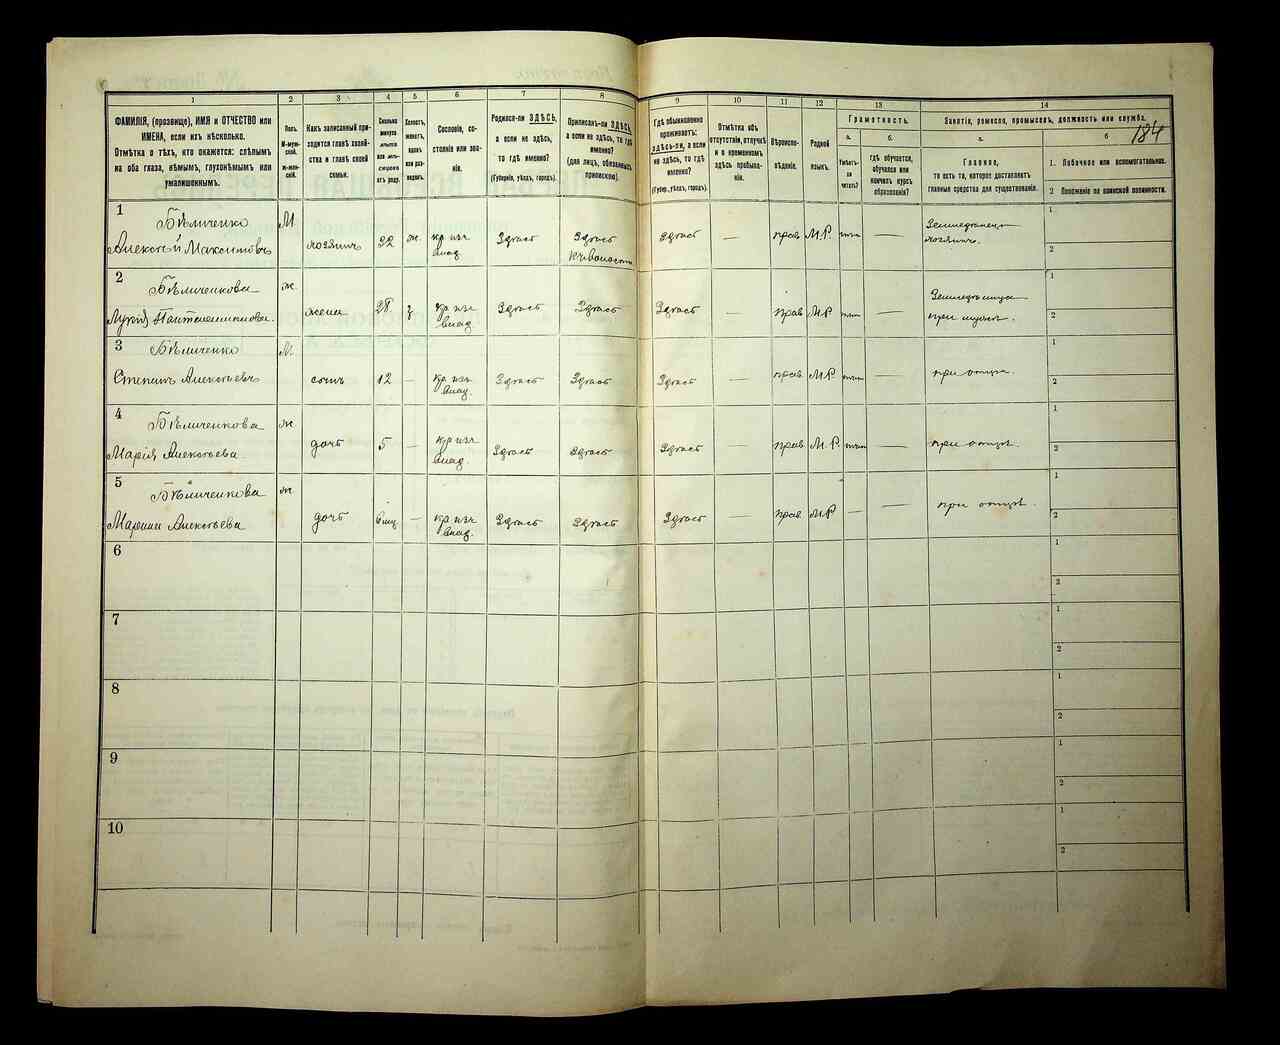 184
1 2 3 4 5 6 7 8 9 10 11 12 13 14
ФАМИЛІЯ, (прозвище), ИМЯ и ОТЧЕСТВО или
ИМЕНА, если ихъ нѣсколько.
Отмѣтка о тѣхъ, кто окажется: слѣпымъ
на оба глаза, нѣмымъ, глухонѣмымъ или
умалишеннымъ.
Полъ.
М-муж-
ской.
ж-жен-
скій.
Какъ записанный при-
ходится главѣ хозяй-
ства и главѣ своей
семьи.
Сколько
минуло
лѣтъ
или мѣ-
сяцевъ
отъ роду.
Холостъ,
женатъ,
вдовъ
или раз-
веденъ.
Сословіе, со-
стояніе или зва-
ніе.
Родился-ли ЗДѢСЬ,
а если не здѣсь,
то гдѣ именно?
(Губернія, уѣздъ, городъ).
Приписанъ-ли ЗДѢСЬ,
а если не здѣсь, то гдѣ
именно?
(для лицъ, обязанныхъ
припискою).
Гдѣ обыкновенно
проживаетъ:
здѣсь-ли, а если
не здѣсь, то гдѣ
именно?
(Губерн., уѣздъ, городъ).
Отмѣтка объ
отсутствіи, отлучкѣ
и о временномъ
здѣсь пребыва-
ніи.
Вѣроиспо-
вѣданіе.
Родной
языкъ.
Грамотность.
а. б.
Умѣетъ-
ли
читать?
гдѣ обучается,
обучался или
кончилъ курсъ
образованія?
Занятіе, ремесло, промыселъ, должность или служба.
а. б
Главное,
то есть то, которое доставляетъ
главныя средства для существованія.
1. Побочное или вспомогательное.
2 Положеніе по воинской повинности.
1 Бѣличенко М
Алексѣй Максимовъ хозяинъ 32 ж. кр изъ Здѣсь Здѣсь Здѣсь — прав М.Р. — Земледѣлецъ
влад хозяинъ.
1
2
2 Бѣличенкова ж.
Пантелеимонова. жена 28 з кр изъ Здѣсь Здѣсь Здѣсь — прав М.Р —
влад. при мужѣ.
1
2
3 Бѣличенко М.
Степанъ Алексѣевъ сынъ 12 — кр изъ Здѣсь Здѣсь Здѣсь — прав М.Р. — при отцѣ.
влад.
1
2
4 Бѣличенкова ж
Марія Алексѣева дочь 5 — кр изъ Здѣсь Здѣсь Здѣсь — прав М.Р. — при отцѣ.
влад.
1
2
5 Бѣличенкова ж
Алексѣева дочь 6 мц — кр изъ Здѣсь Здѣсь Здѣсь — прав. М.Р — — при отцѣ.
влад.
1
2
6
1
2
7
1
2
8
1
2
9
1
2
10
1
2